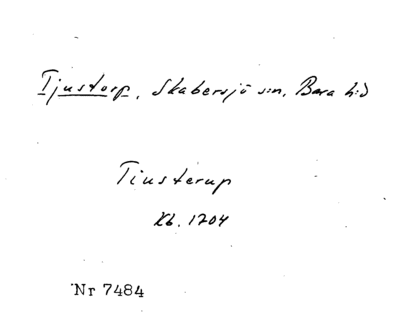 Tjustorp, Skabersjö s:n, Bara h:d
Tiusterup
Kb. 1704
Nr 7484